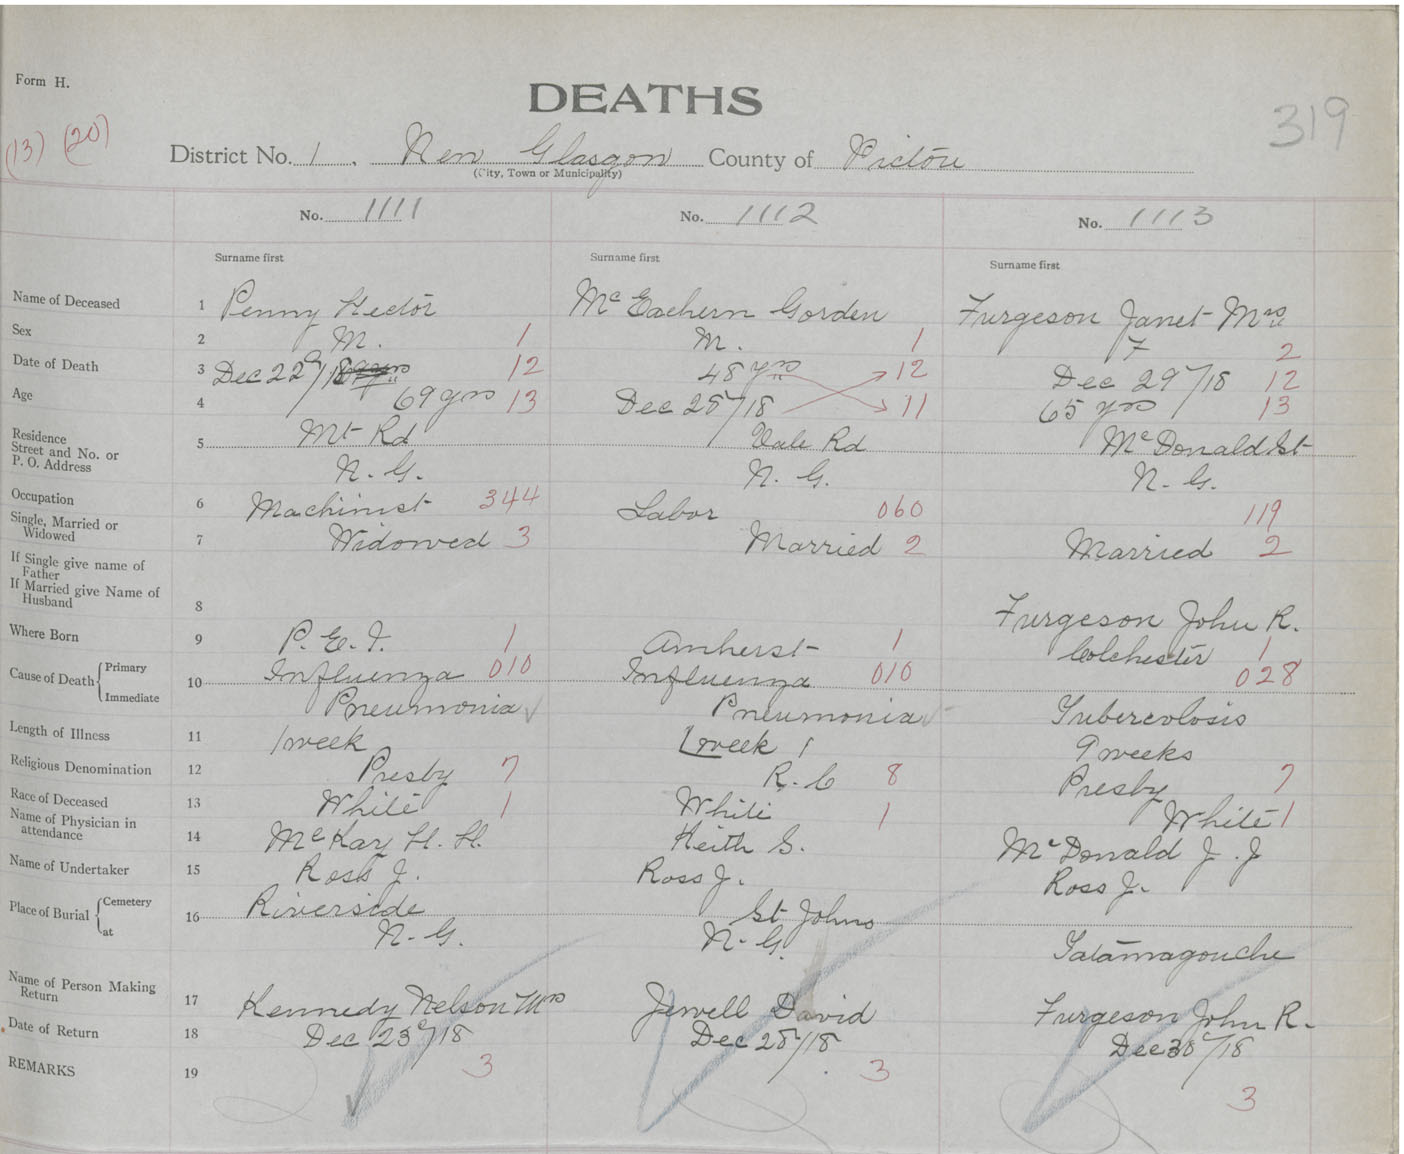 Form H.
DEATHS
319
(13) (20)
District No. 1. New Glasgow County of Pictou
(City, Town or Municipality)
No. 1111 No. 1112 No. 1113
Surname first Surname first Surname first
Name of Deceased 1 Penny Hector McEachern Gorden Furgeson Janet Mrs
Sex 2 M. 1 M. 1 F 2
Date of Death 3 Dec 22/18 12 48 yrs 12 Dec 29/18 12
Age 4 69 yrs 13 Dec 28/18 11 65 yrs 13
Residence Street and No. or P. O. Address 5 Mt Rd Vale Rd McDonald St
N. G. N. G. N. G.
Occupation 6 Machinist 344 Labor 060 119
Single, Married or Widowed 7 Widowed 3 Married 2 Married 2
If Single give name of Father
If Married give Name of Husband 8 Furgeson John R.
Where Born 9 P. E. I. 1 Amherst 1 Colchester 1
Cause of Death { Primary 10 Influenza 010 Influenza 010 028
Immediate Pneumonia Pneumonia Tubercolosis
Length of Illness 11 1 week 1 week 1 9 weeks
Religious Denomination 12 Presby 7 R. C 8 Presby 7
Race of Deceased 13 White 1 White 1 White 1
Name of Physician in attendance 14 McKay H. H. Keith S. McDonald J. J
Name of Undertaker 15 Ross J. Ross J. Ross J.
Place of Burial { Cemetery 16 Riverside St Johns
at N. G. N. G. Tatamagouche
Name of Person Making Return 17 Kennedy Nelson Mrs Jewell David Furgeson John R.
Date of Return 18 Dec 23/18 Dec 28/18 Dec 30/18
REMARKS 19 3 3 3